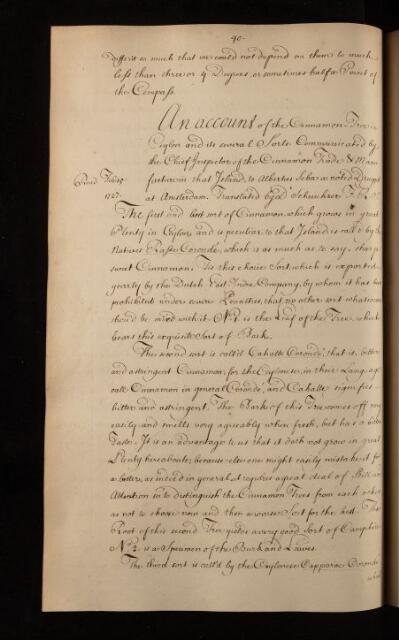 40.
differ'd so much that we could not depend on them to much
less than three or 4 Degrees, or sometimes half a Point of
the Compass.
An account of the Cinnamon Tree in
Ceylon and its several Sorts. Communicated by
the Chief Inspector of the Cinnamon Trade & Manu
facture in that Island, to Albertus Seba a noted Drugst
at Amsterdam. Translated by Scheuchzer F. R. S.
Read
1727.
The first and best sort of Cinnamon, which grows in great
Plenty in Ceylon, and is peculiar to that Island, is call'd by the
Natives Rasse Coronde, which is as much as to say, sharp
sweet Cinnamon. Tis this choice Sort, which is exported
yearly by the Dutch East India Company, by whom it has been
prohibited under severe Penalties, that no other sort whatsoever
should be mix'd with it. No. 1. is the Leaf of the Tree, which
bears this exquisite Sort of Bark.
The second sort is call'd Cahatte Coronde, that is, bitter
and astringent Cinnamon, for the Ceylonese, in their Language
call Cinnamon in general Coronde, and Cahatte signifies
bitter and astringent. The Bark of this Tree comes off very
easily and smells very agreeably when fresh, but has a bitter
Taste. It is an advantage to us that it doth not grow in great
Plenty hereabouts, because else one might easily mistake it for
a better, as indeed in general it requires a great deal of Skill and
Attention to distinguish the Cinnamon Trees from each other
as not to choose now and then a worse Sort for the best. The
Root of this second Tree yields a very good Sort of Camphire
No. 2. is a Specimen of the Bark and Leaves.
The third sort is call'd by the Ceylonese Capparae Coronde
which